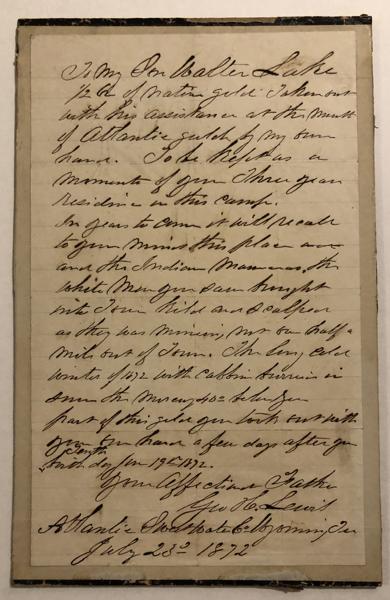 To My Son Walter Lake
1/2 oz of native gold Taken out
with his assistance at the mouth
of Atlantic gulch by my own
hand. To be Kept as a
momento of your Three years
residence in this camp.
In years to come it will recall
to your mind this place and
and the Indian Massacres, the
white Men you saw brought
into Town Kild and Scalped
as they was mining not one half a
mile out of Town. The long cold
winter of 1872 with cabbin in
snow the Mercury 40° below
part of this gold you took out with
your own hand a few days after your
Tenth
birth day Jun 19th 1872.
Your Affectionate Father
Geo H. Lewis
Atlantic Sweetwater Co Wyoming Ter
July 23d 1872